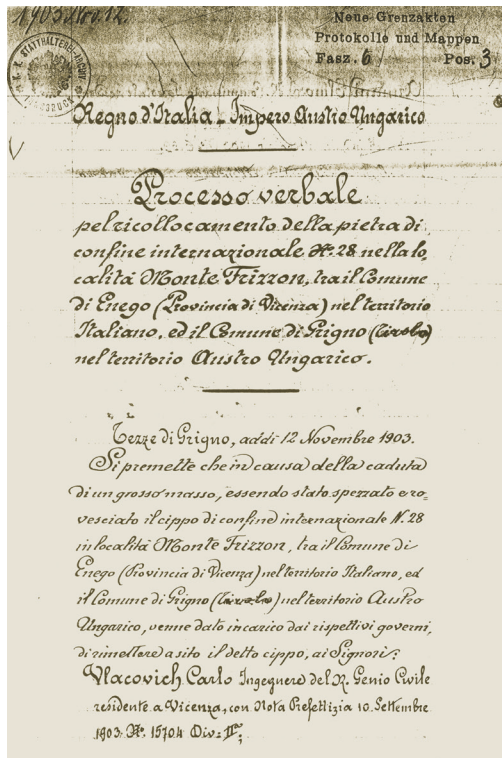 1903 Nov. 12.
Neue Grenzakten
Protokolle und Mappen
Fasz. 6 Pos. 3
K. K. STATTHALTEREI-ARCHIV INNSBRUCK
Regno d'Italia - Impero Austro Ungarico
Processo verbale
pel ricollocamento della pietra di
confine internazionale N. 28 nella lo
calitá Monte Frizzon, tra il Comune
di Enego (Provincia di Vicenza) nel territorio
Italiano, ed il Comune di Grigno (Tirolo)
nel territorio Austro Ungarico.
Tezze di Grigno, addi 12 Novembre 1903.
Si premette che in causa della caduta
di un grosso masso, essendo stato spezzato e ro-
vesciato il cippo di confine internazionale N. 28
in localitá Monte Frizzon, tra il Comune di
Enego (Provincia di Vicenza) nel territorio Italiano, ed
il Comune di Grigno (Tirolo) nel territorio Austro
Ungarico, venne dato incarico dai rispettivi governi,
di rimettere a sito il detto cippo, ai Signori:
Vlacovich Carlo Ingegnere del R. Genio Civile
residente a Vicenza, con Nota Prefettizia 10 Settembre
1903 N. 15704 Div. IIa;